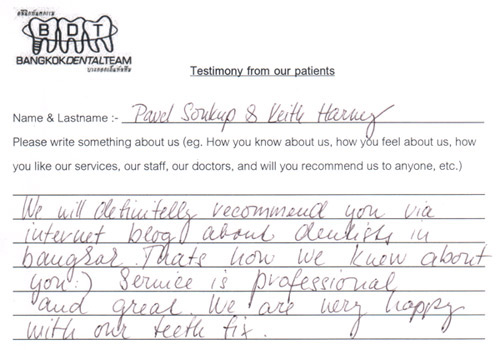 คลินิกทันตกรรม
BDT
BANGKOKDENTALTEAM
บางกอกเด็นทัลทีม
Testimony from our patients
Name & Lastname :- Pavel Soukup & Keith Harvey
Please write something about us (eg. How you know about us, how you feel about us, how
you like our services, our staff, our doctors, and will you recommend us to anyone, etc.)
We will definitelly recommend you via
internet blog about dentists in
bangkok. Thats how we know about
you:) Service is professional
and great. We are very happy
with our teeth fix.